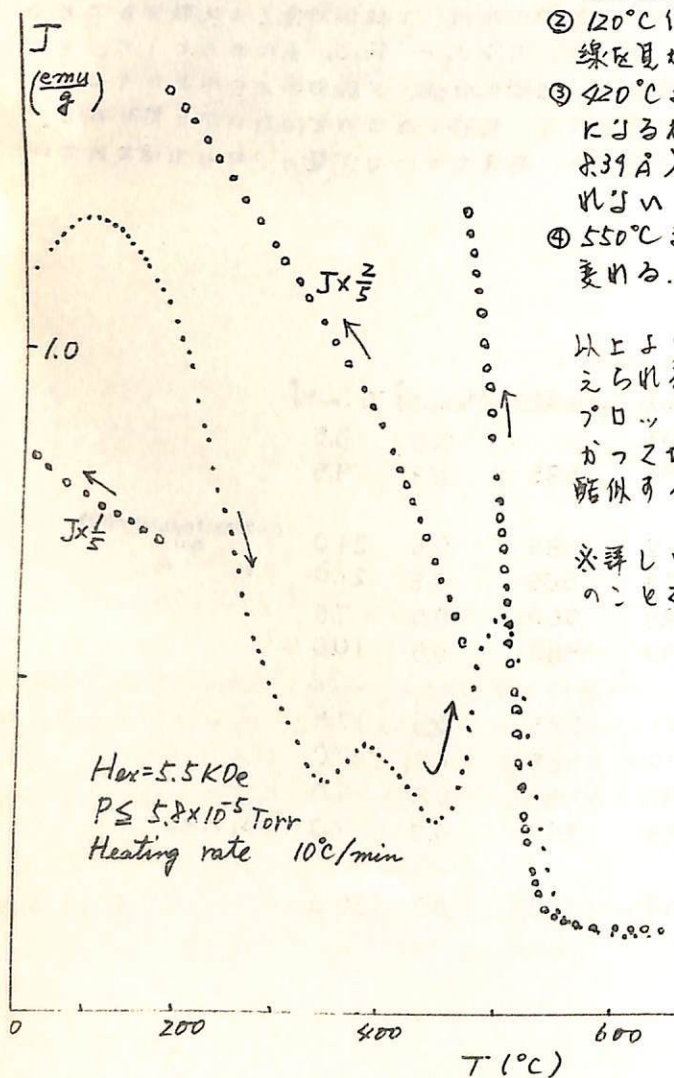 J
(emu/g)
1.0
J×2/5
J×1/5
Hex=5.5 KOe
P≤ 5.8×10⁻⁵ Torr
Heating rate 10°C/min
0 200 400 600
T (°C)
② 120°C
線を見
③ 420°C
による
8.39Å)
れない
④ 550°C
変れる.
以上よ
えられる
プロッ
かって
酷似す
※詳し
のこと